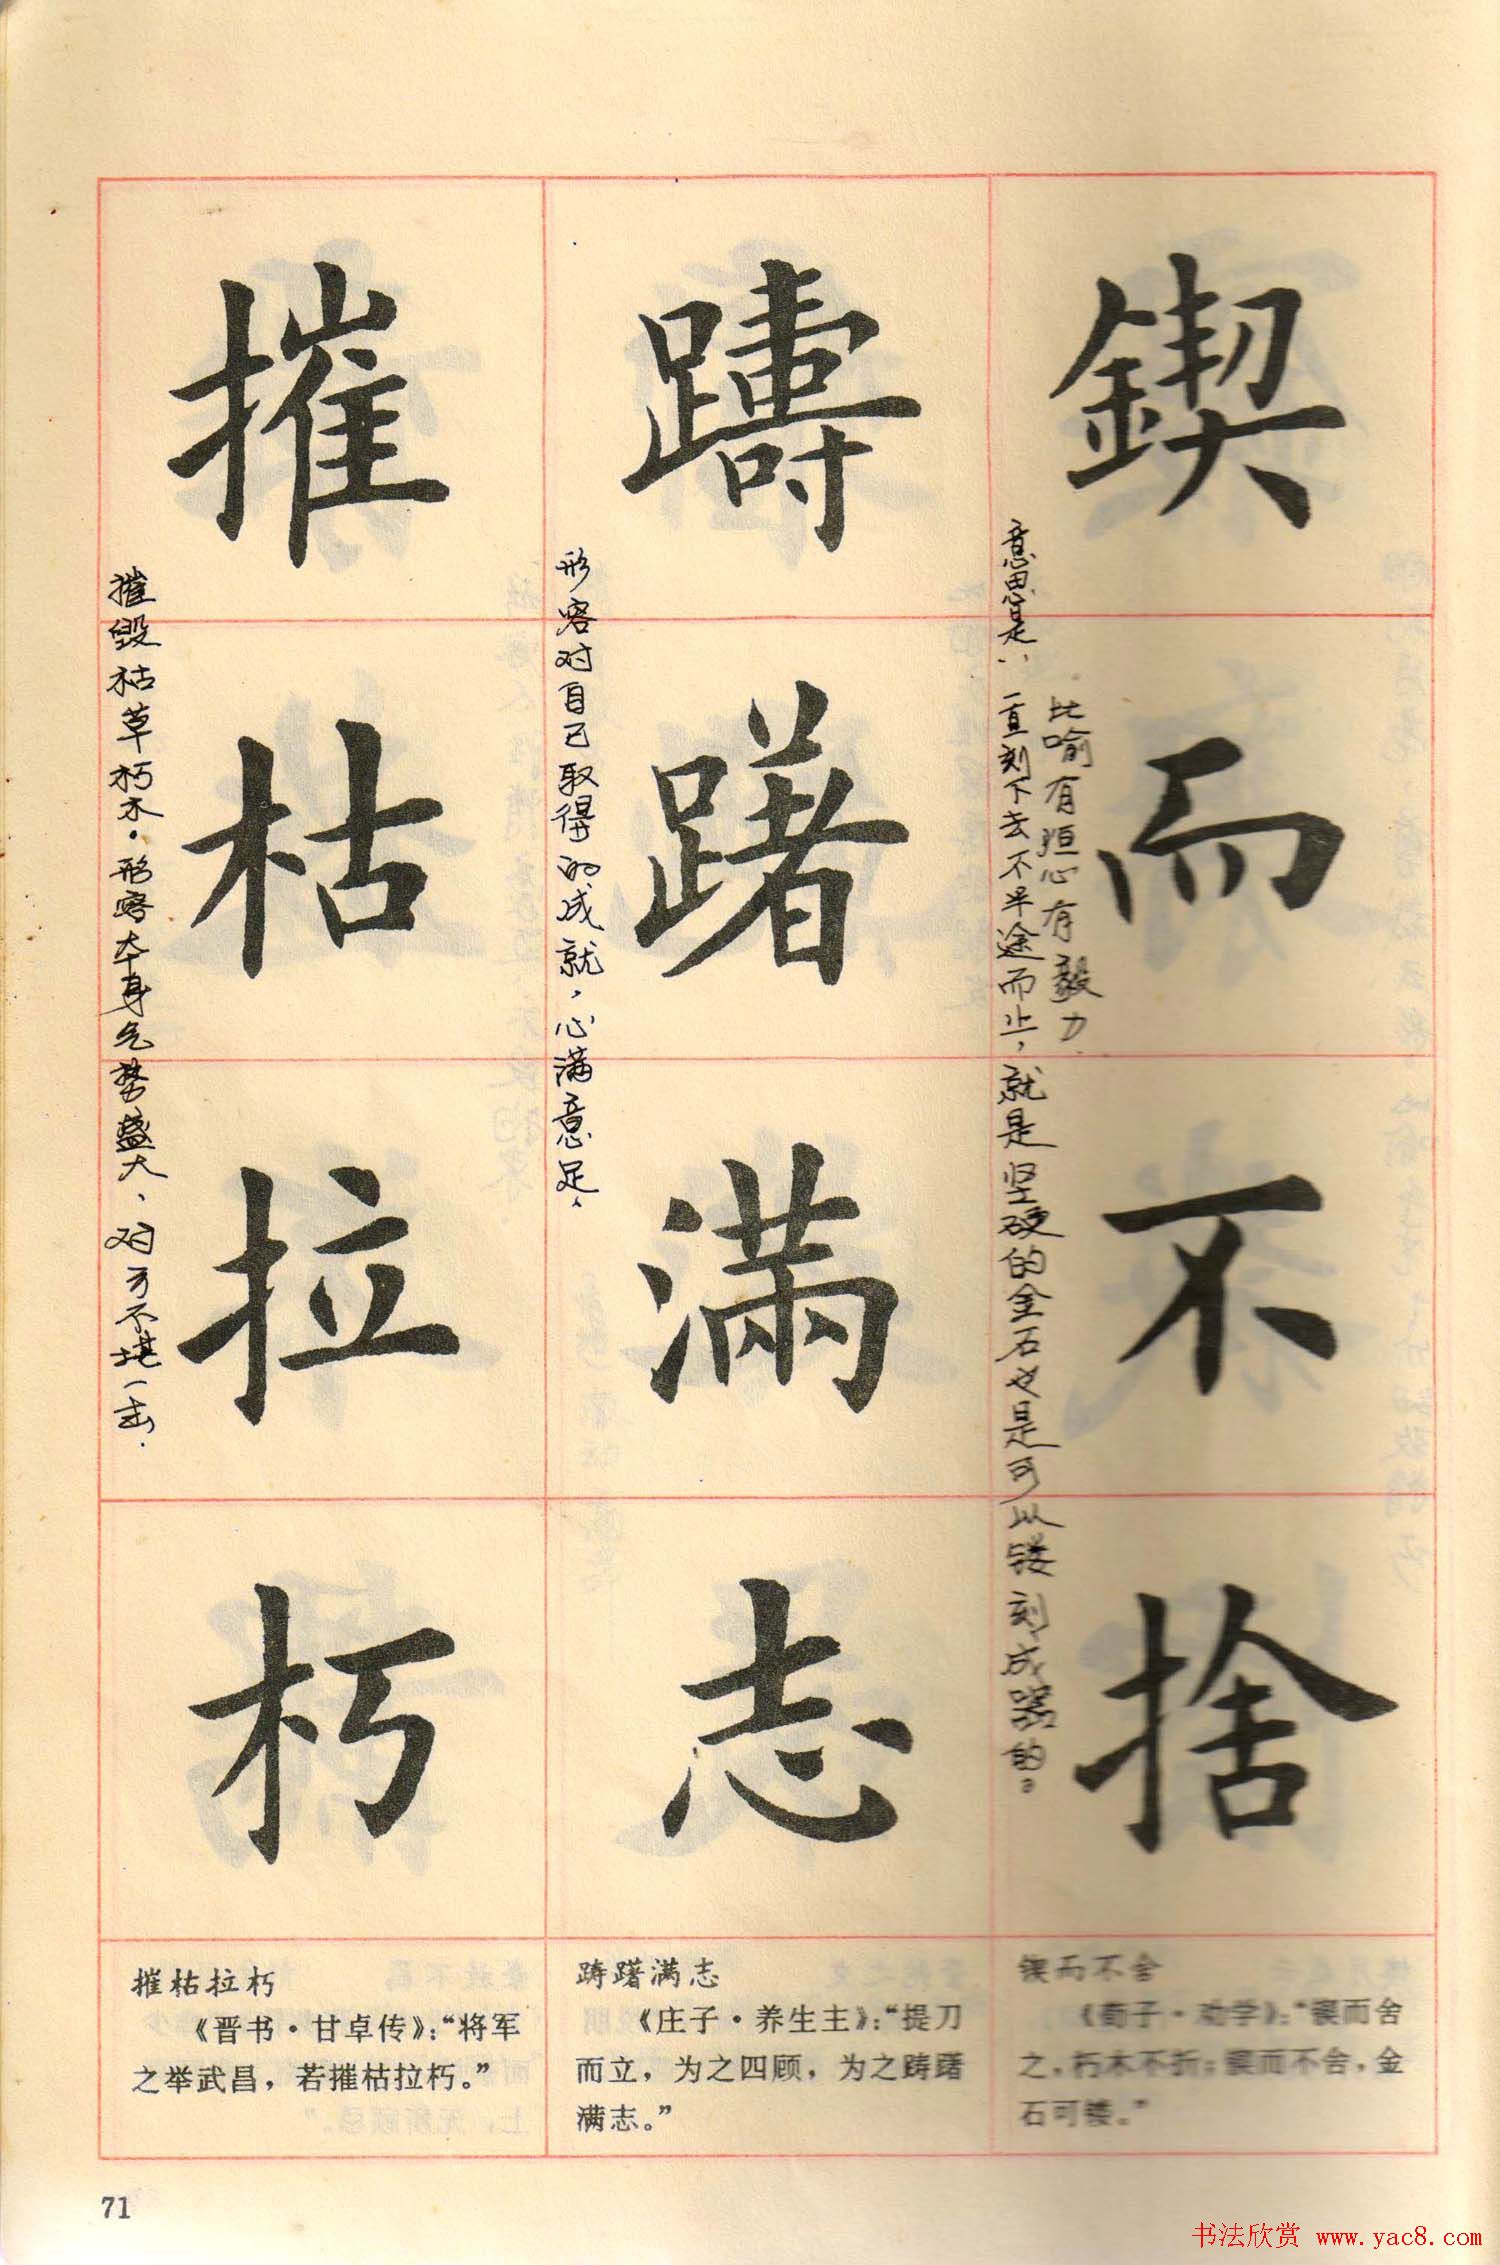 鍥而不捨
意思是：一直刻下去不半途而止，就是坚硬的金石也是可以镂刻成器的。
比喻有恒心有毅力
躊躇滿志
形容对自己取得的成就，心满意足、
摧枯拉朽
摧毁枯草朽木。形容本身气势盛大、对方不堪一击.
锲而不舍
《荀子·劝学》：“锲而舍
之，朽木不折；锲而不舍，金
石可镂。”
踌躇满志
《庄子·养生主》：“提刀
而立，为之四顾，为之踌躇
满志。”
摧枯拉朽
《晋书·甘卓传》：“将军
之举武昌，若摧枯拉朽。”
71
书法欣赏 www.yac8.com